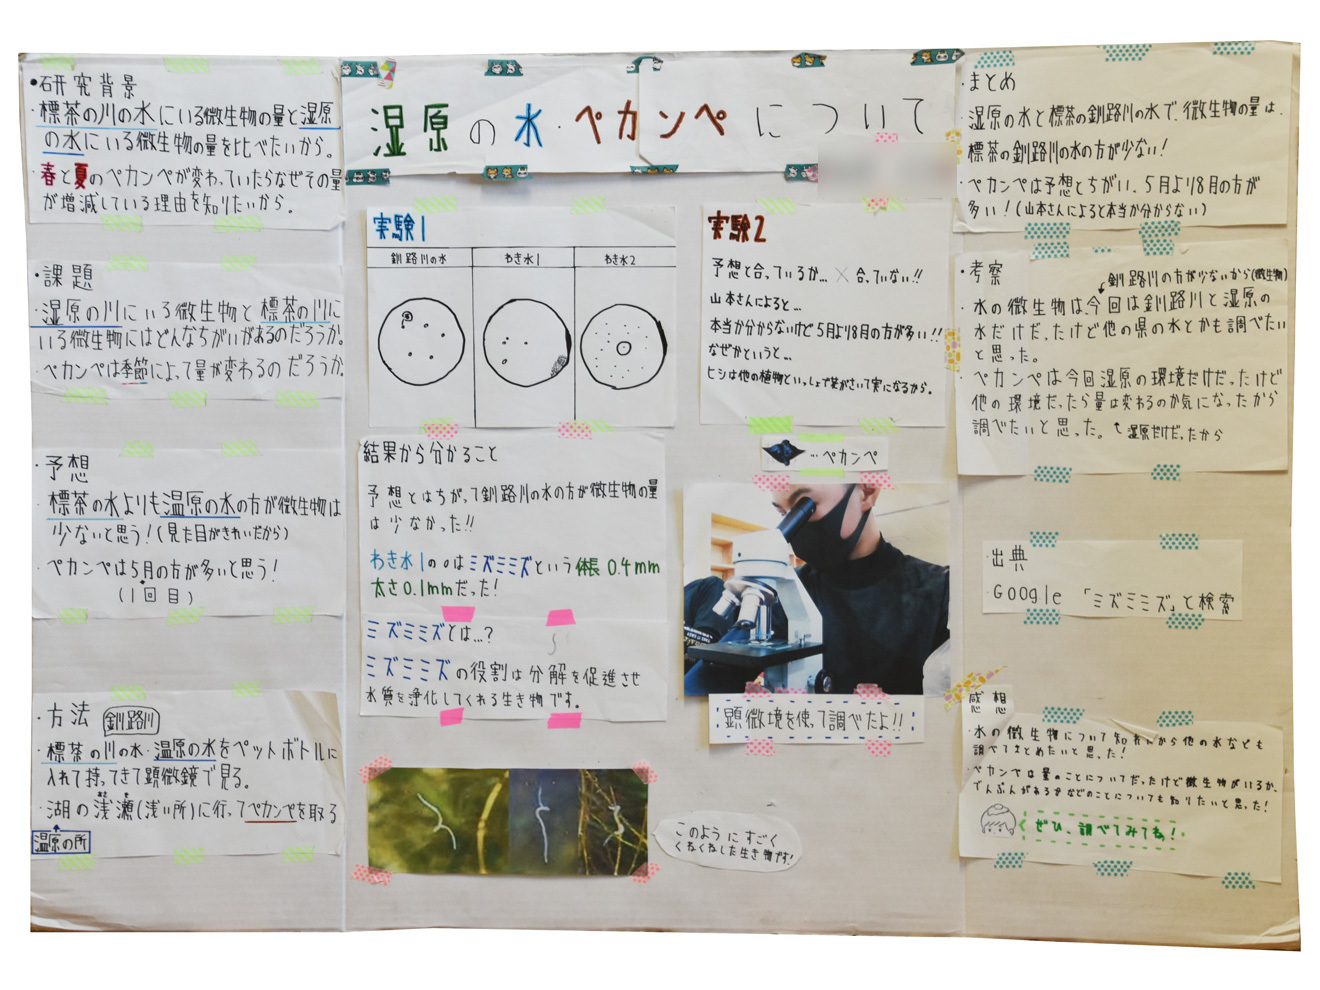 湿原の水・ペカンペについて
・研究背景
・標茶の川の水にいる微生物の量と湿原
の水にいる微生物の量を比べたいから。
・春と夏のペカンペが変わっていたらなぜその量
が増減している理由を知りたいから。
・課題
・湿原の川にいる微生物と標茶の川に
いる微生物にはどんなちがいがあるのだろうか。
・ペカンペは季節によって量が変わるのだろうか。
・予想
・標茶の水よりも湿原の水の方が微生物は
少ないと思う!(見た目がきれいだから)
・ペカンペは5月の方が多いと思う!
(1回目)
・方法
釧路川
・標茶の川の水・湿原の水をペットボトルに
入れて持ってきて顕微鏡で見る。
・湖の浅瀬(浅い所)に行ってペカンペを取る
湿原の所
実験1
釧路川の水
わき水1
わき水2
結果から分かること
予想とはちがって釧路川の水の方が微生物の量
は少なかった!!
わき水1のoはミズミミズという体長0.4mm
太さ0.1mmだった!
ミズミミズとは…?
ミズミミズの役割は分解を促進させ
水質を浄化してくれる生き物です。
このようにすごく
くねくねした生き物です!
実験2
予想と合っているか… × 合っていない!!
山本さんによると…
本当か分からないけど5月より8月の方が多い!!
なぜかというと…
ヒシは他の植物といっしょで花がさいて実になるから。
…ペカンペ
顕微境を使って調べたよ!!
・まとめ
・湿原の水と標茶の釧路川の水で、微生物の量は、
標茶の釧路川の水の方が少ない!
・ペカンペは予想とちがい、5月より8月の方が
多い!(山本さんによると本当か分からない)
・考察
釧路川の方が少ないから(微生物)
・水の微生物は、今回は釧路川と湿原の
水だけだったけど他の県の水とかも調べたい
と思った。
・ペカンペは今回湿原の環境だけだったけど
他の環境だったら量は変わるのか気になったから
調べたいと思った。
湿原だけだったから
出典
Google 「ミズミミズ」と検索
感想
・水の微生物について知れたから他の水なども
調べてまとめたいと思った!
・ペカンペは量のことについてだったけど微生物がいるか、
でんぷんがある?などのことについても知りたいと思った!
ぜひ、調べてみてね!